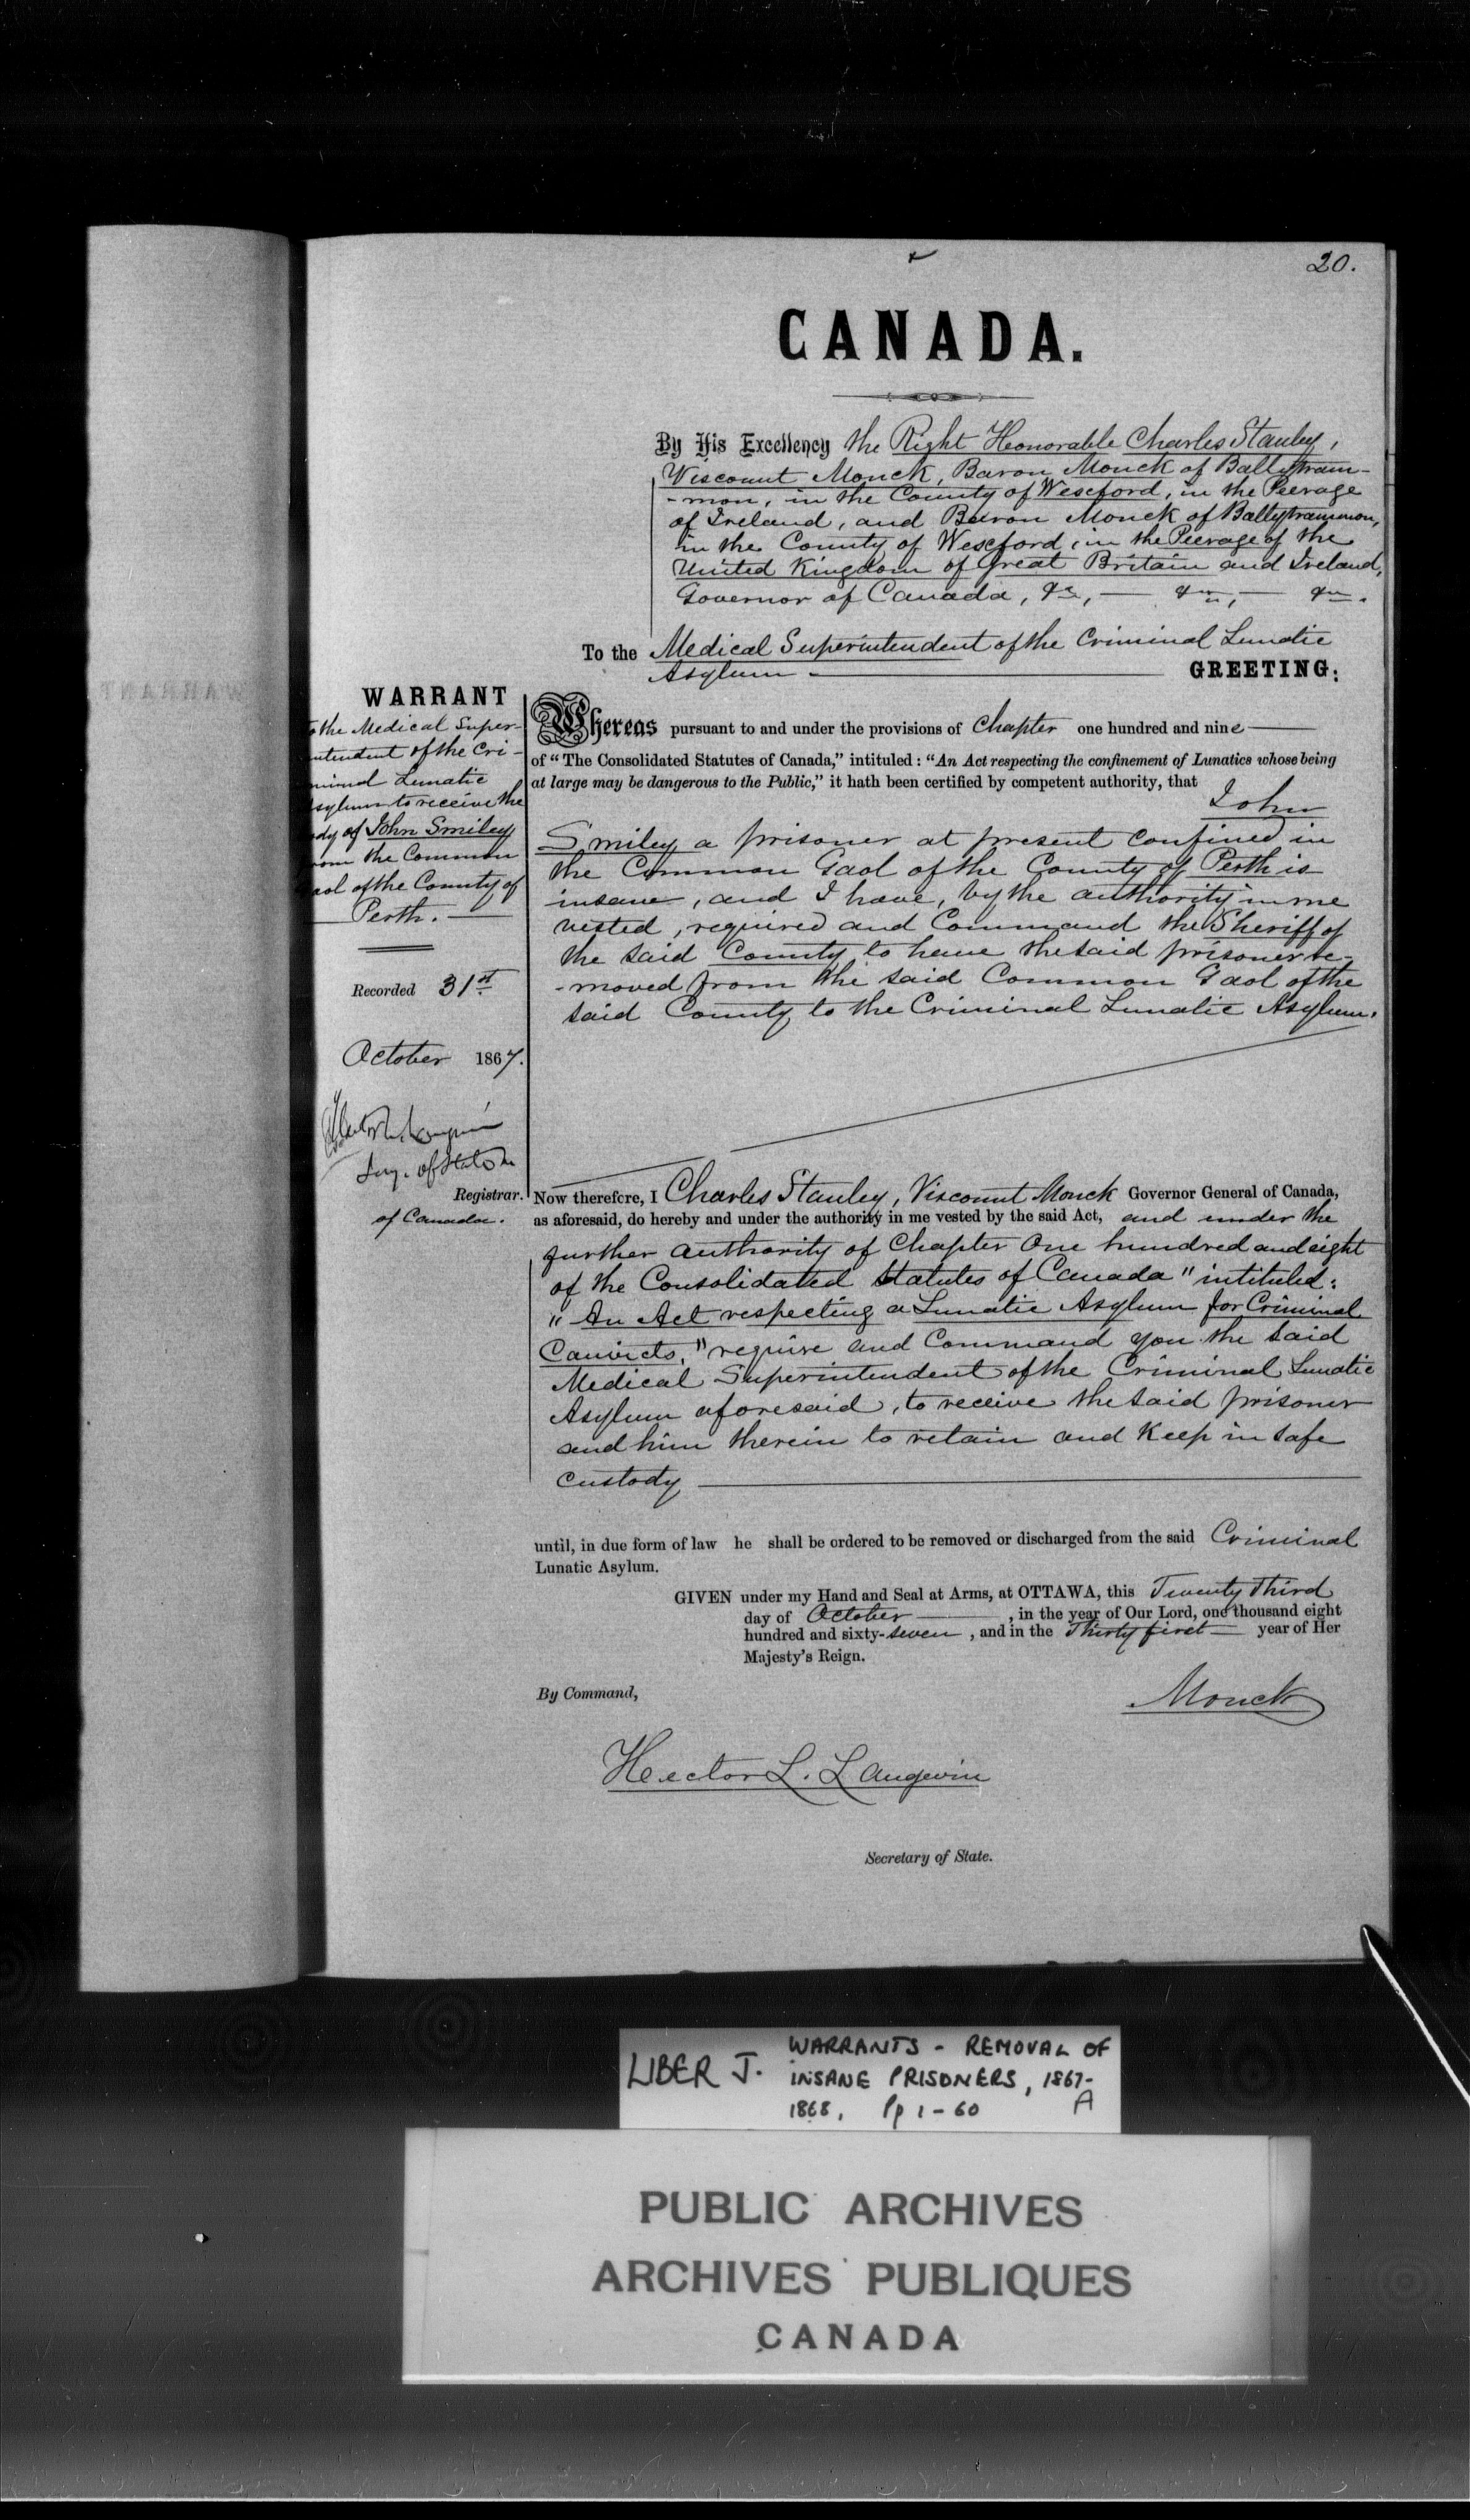 20.
CANADA.
By His Excellency the Right Honorable Charles Stanley,
Viscount Monck, Baron Monck of Ballytram-
-mon, in the County of Wexford, in the Peerage
of Ireland, and Baron Monck of Ballytrammon,
in the County of Wexford, in the Peerage of the
United Kingdom of Great Britain and Ireland,
Governor of Canada, &c, — &c, — &c.
To the Medical Superintendent of the Criminal Lunatic
Asylum — GREETING:
WARRANT
to the Medical Super-
intendent of the Cri-
minal Lunatic
Asylum to receive the
body of John Smiley
from the Common
Gaol of the County of
Perth. —
Recorded 31st
October 1867.
Registrar.
of Canada.
Whereas pursuant to and under the provisions of Chapter one hundred and nine —
of "The Consolidated Statutes of Canada," intituled: "An Act respecting the confinement of Lunatics whose being
at large may be dangerous to the Public," it hath been certified by competent authority, that
John
Smiley a prisoner at present confined in
the Common Gaol of the County of Perth is
insane, and I have, by the authority in me
vested, required and Command the Sheriff of
the said County to have the said prisoner re-
-moved from the said Common Gaol of the
said County to the Criminal Lunatic Asylum.
Now therefore, I Charles Stanley, Viscount Monck Governor General of Canada,
as aforesaid, do hereby and under the authority in me vested by the said Act, and under the
further authority of Chapter One hundred and eight
of the Consolidated Statutes of Canada" intituled:
"An Act respecting a Lunatic Asylum for Criminal
Convicts," require and Command you the said
Medical Superintendent of the Criminal Lunatic
Asylum aforesaid, to receive the said prisoner
and him therein to retain and Keep in safe
custody —
until, in due form of law he shall be ordered to be removed or discharged from the said Criminal
Lunatic Asylum.
GIVEN under my Hand and Seal at Arms, at OTTAWA, this Twenty Third
day of October —, in the year of Our Lord, one thousand eight
hundred and sixty-seven, and in the Thirty first — year of Her
Majesty's Reign.
By Command,
Monck
Hector L. Langevin
Secretary of State.
LIBER J. WARRANTS - REMOVAL OF
INSANE PRISONERS, 1867-
1868, Pp 1-60 A
PUBLIC ARCHIVES
ARCHIVES PUBLIQUES
CANADA